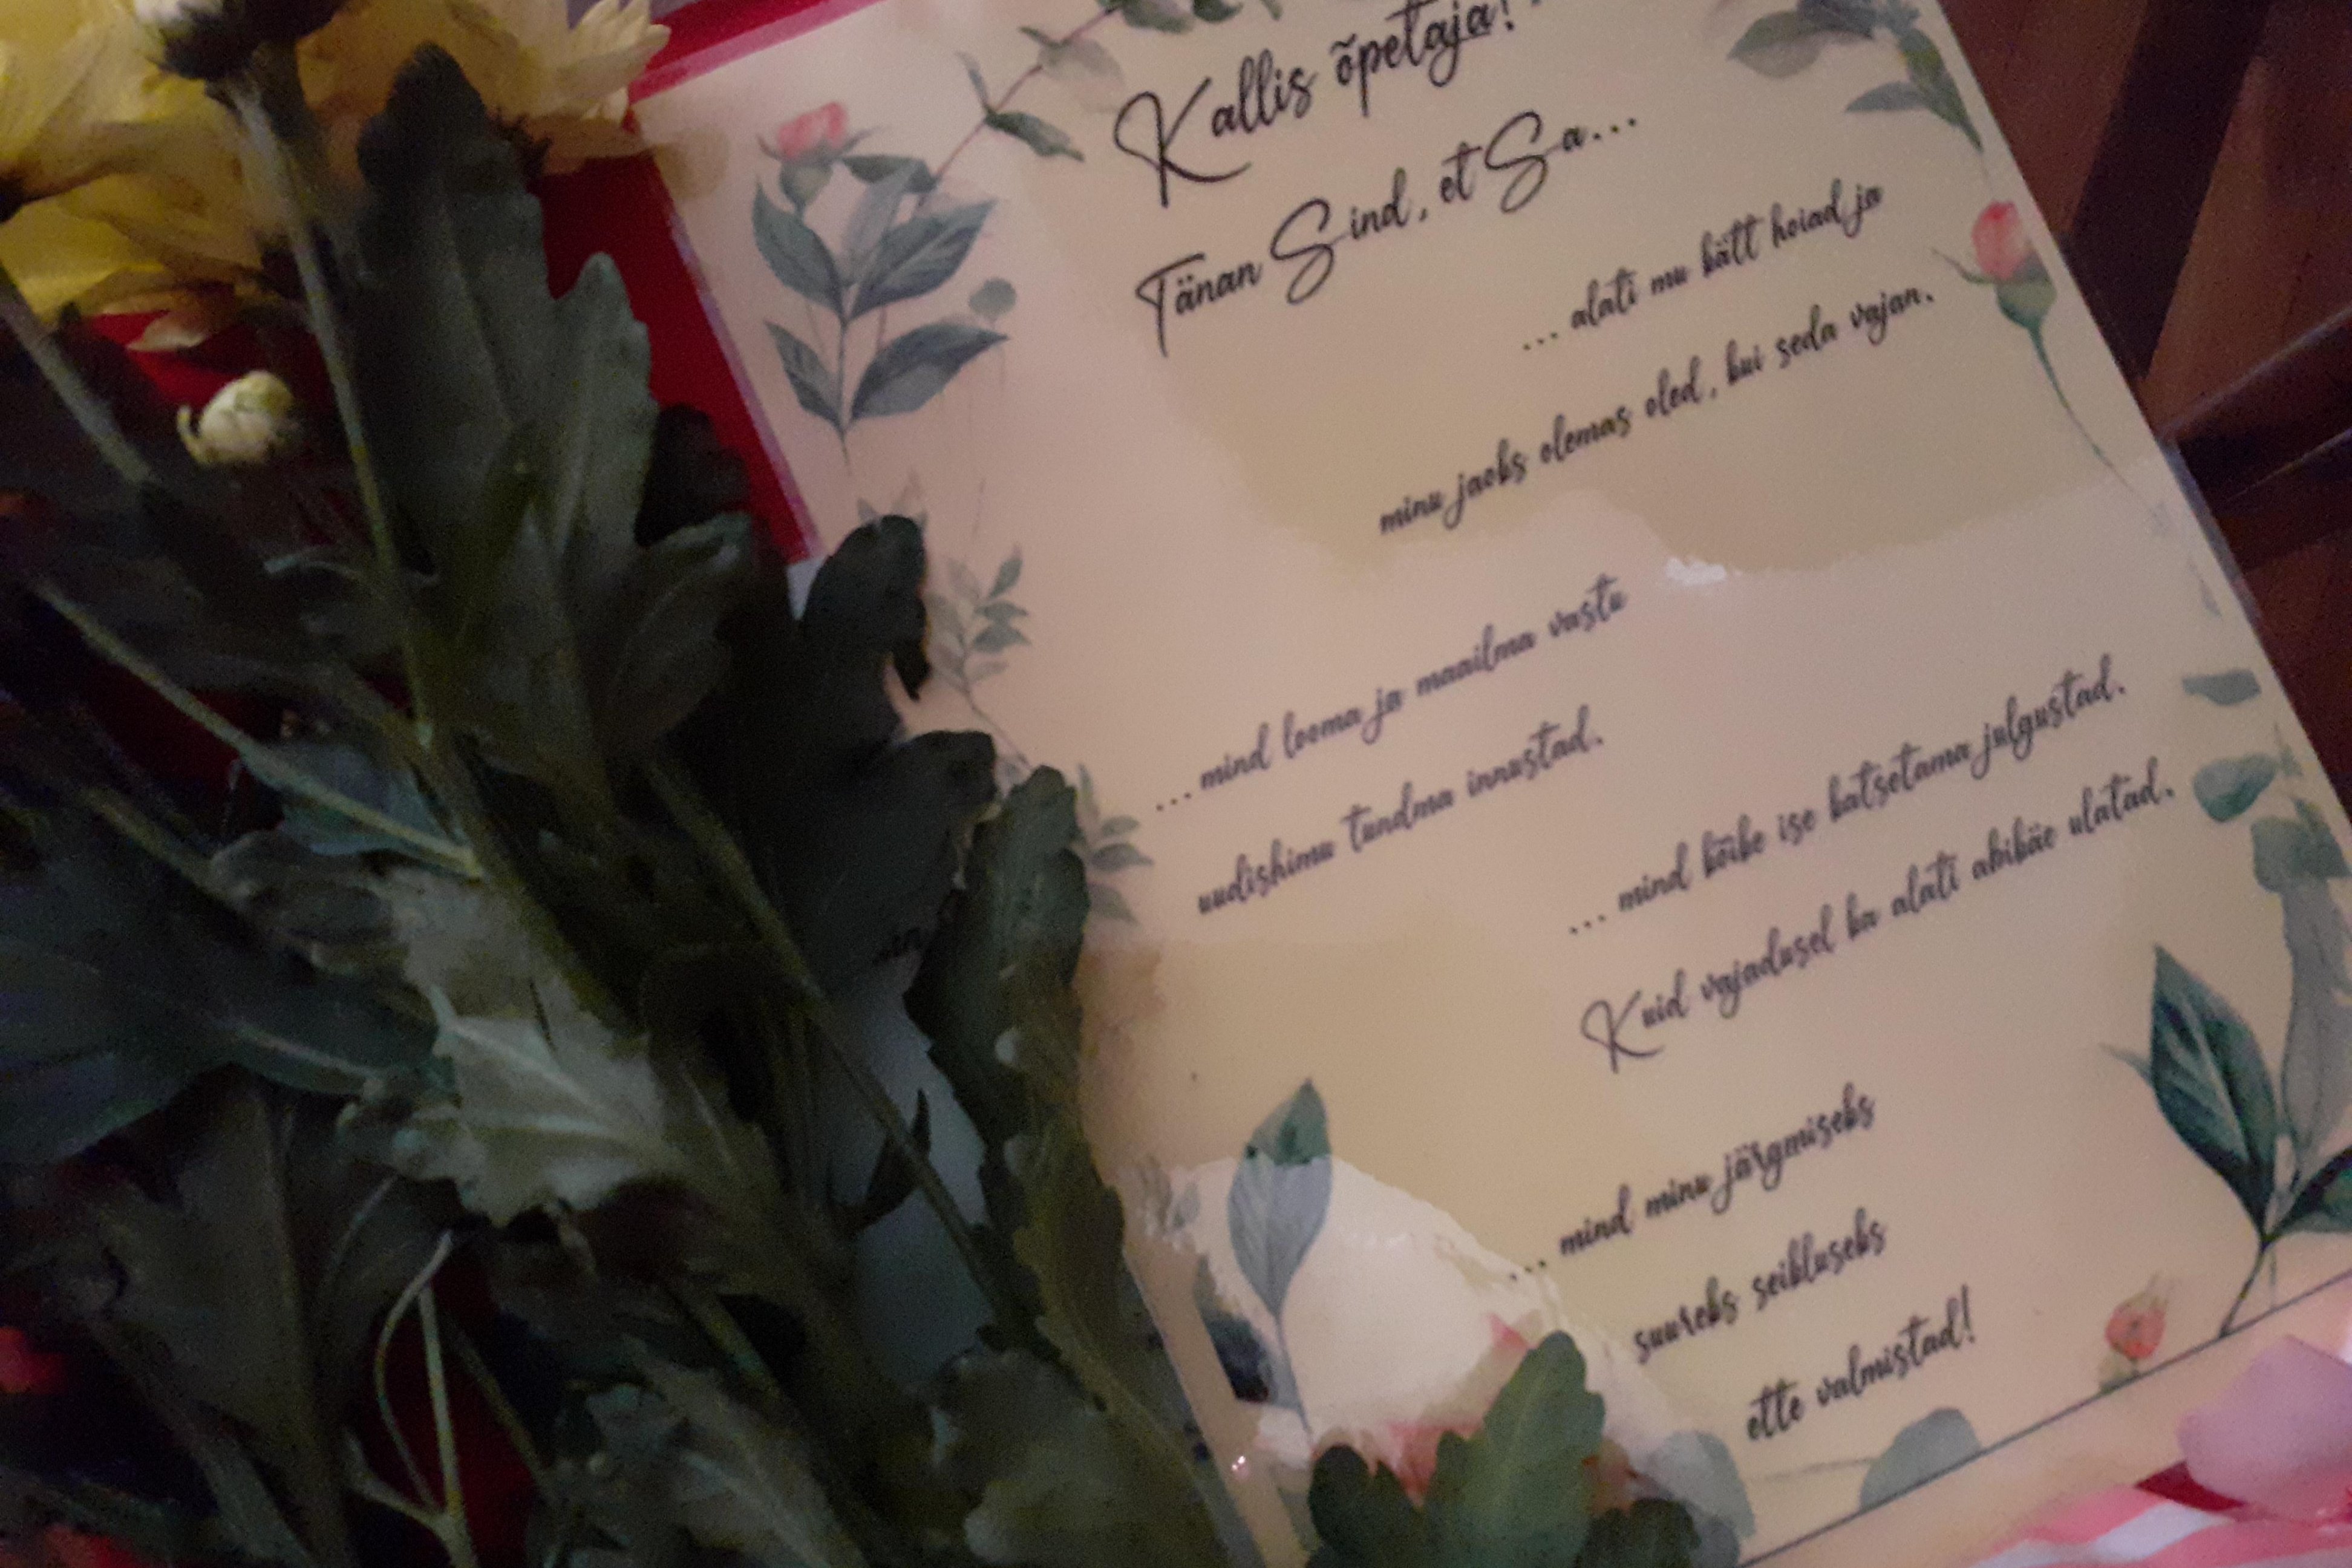 Kallis õpetaja!
Tänan Sind, et Sa...
... alati mu kätt hoiad ja
minu jaoks olemas oled, kui seda vajan.
... mind looma ja maailma vastu
uudishimu tundma innustad.
... mind kõike ise katsetama julgustad.
Kuid vajadusel ka alati abikäe ulatad.
... mind minu järgmiseks
suureks seikluseks
ette valmistad!